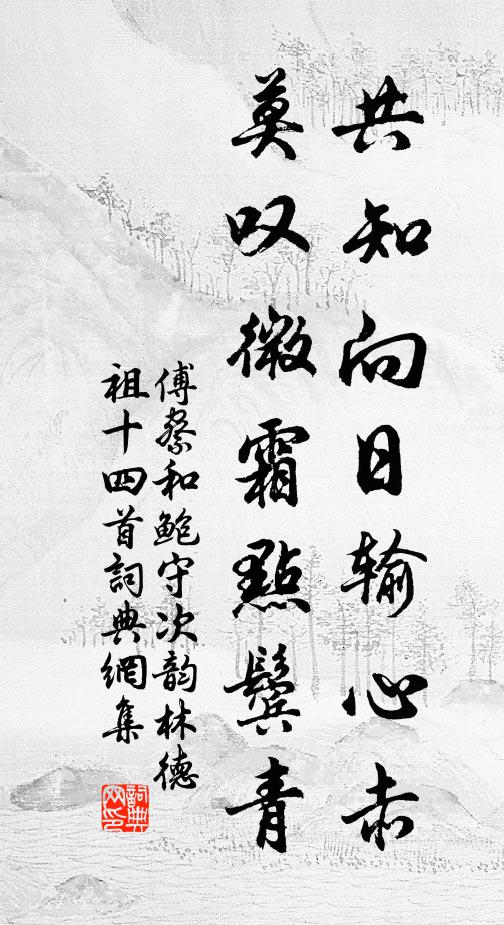 共知向日输心赤
莫叹微霜點鬓青
傅察和鲍守次韵林德
祖十四首詞典網集
詞典网印